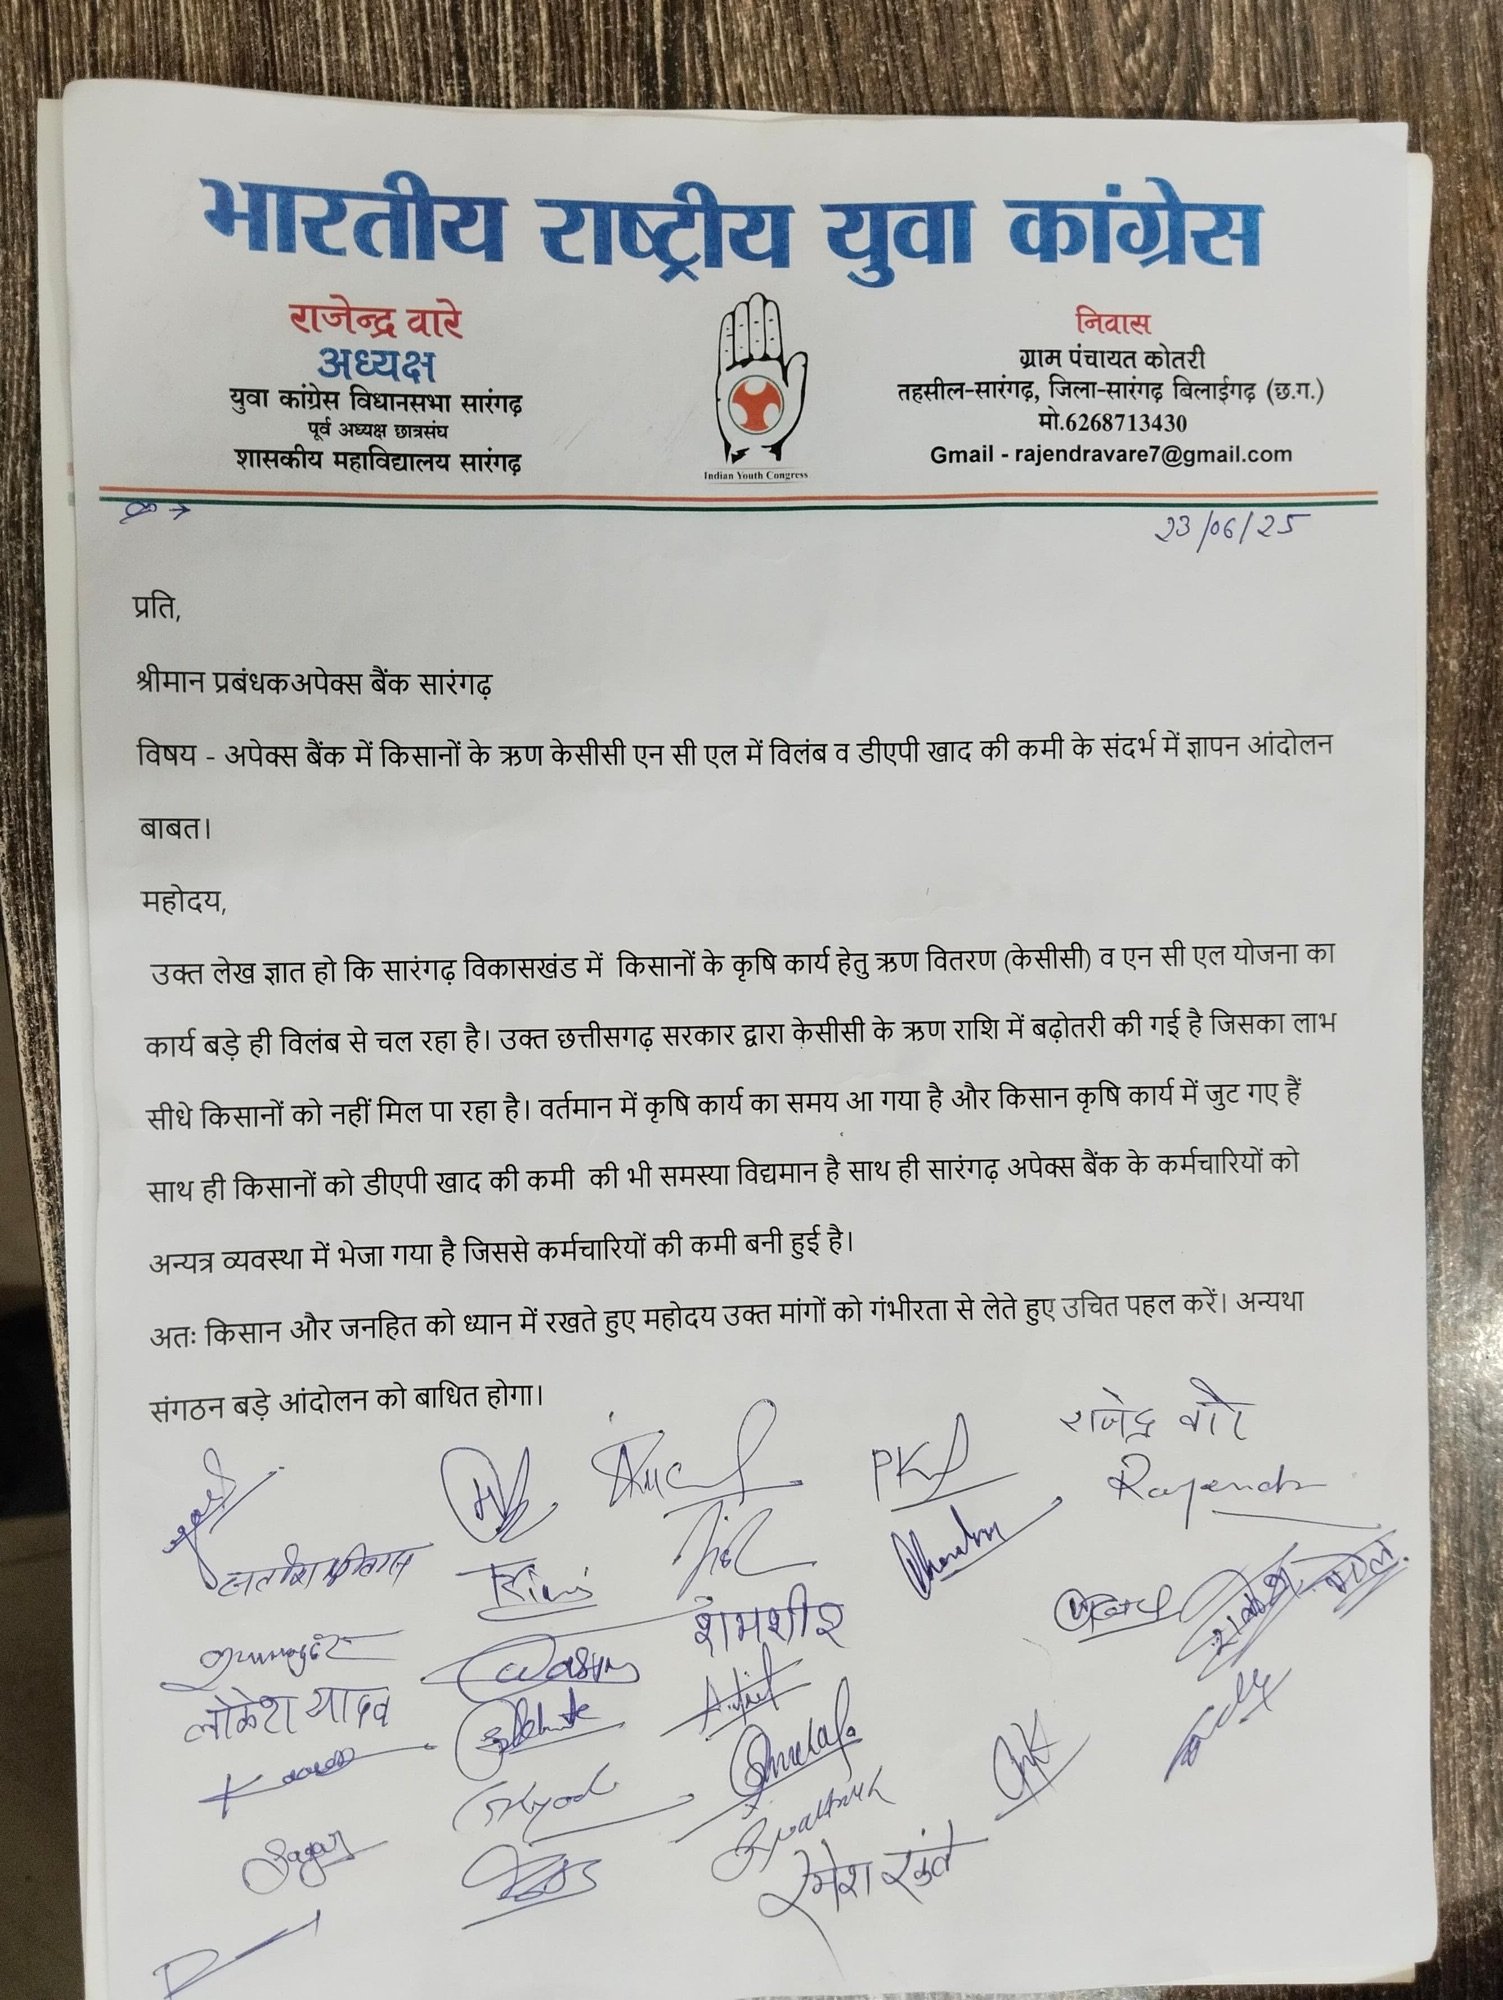 भारतीय राष्ट्रीय युवा कांग्रेस
राजेन्द्र वारे
अध्यक्ष
युवा कांग्रेस विधानसभा सारंगढ़
पूर्व अध्यक्ष छात्रसंघ
शासकीय महाविद्यालय सारंगढ़
Indian Youth Congress
निवास
ग्राम पंचायत कोतरी
तहसील-सारंगढ़, जिला-सारंगढ़ बिलाईगढ़ (छ.ग.)
मो.6268713430
Gmail - rajendravare7@gmail.com
23/06/25
प्रति,
श्रीमान प्रबंधकअपेक्स बैंक सारंगढ़
विषय - अपेक्स बैंक में किसानों के ऋण केसीसी एन सी एल में विलंब व डीएपी खाद की कमी के संदर्भ में ज्ञापन आंदोलन
बाबत।
महोदय,
उक्त लेख ज्ञात हो कि सारंगढ़ विकासखंड में किसानों के कृषि कार्य हेतु ऋण वितरण (केसीसी) व एन सी एल योजना का
कार्य बड़े ही विलंब से चल रहा है। उक्त छत्तीसगढ़ सरकार द्वारा केसीसी के ऋण राशि में बढ़ोतरी की गई है जिसका लाभ
सीधे किसानों को नहीं मिल पा रहा है। वर्तमान में कृषि कार्य का समय आ गया है और किसान कृषि कार्य में जुट गए हैं
साथ ही किसानों को डीएपी खाद की कमी की भी समस्या विद्यमान है साथ ही सारंगढ़ अपेक्स बैंक के कर्मचारियों को
अन्यत्र व्यवस्था में भेजा गया है जिससे कर्मचारियों की कमी बनी हुई है।
अतः किसान और जनहित को ध्यान में रखते हुए महोदय उक्त मांगों को गंभीरता से लेते हुए उचित पहल करें। अन्यथा
संगठन बड़े आंदोलन को बाधित होगा।
राजेंद्र वारे
Rajendra
शमशीर
लोकेश यादव
Sagar
रमेश